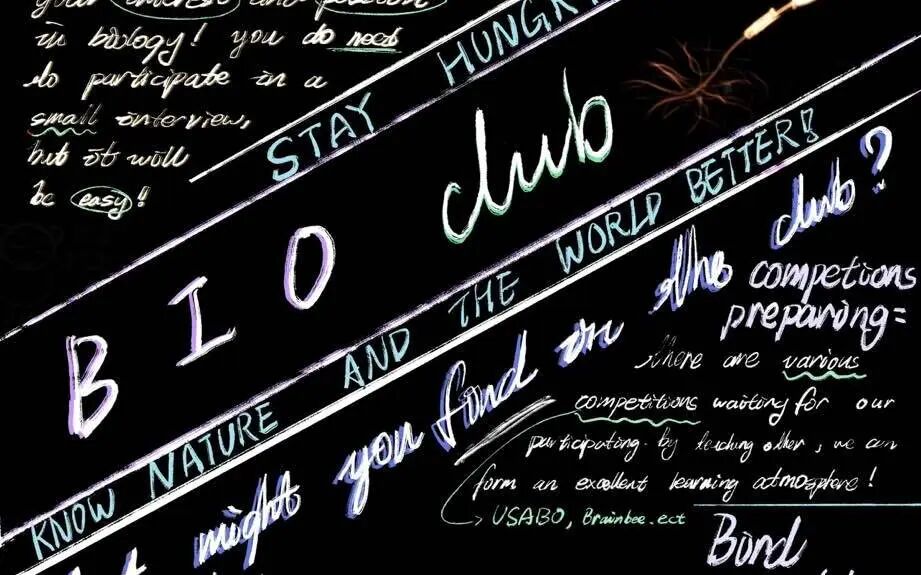 your interest and passion
in biology! you do need
to participate in a
small interview,
but it will
be easy!!
STAY HUNGRY
BIO club
KNOW NATURE AND THE WORLD BETTER!
might you find in the club?
competions
preparing:
there are various
competitions waiting for our
participating. by teaching other, we can
form an excellent learning atmosphere!
USABO, Brainbee.ect
Bond